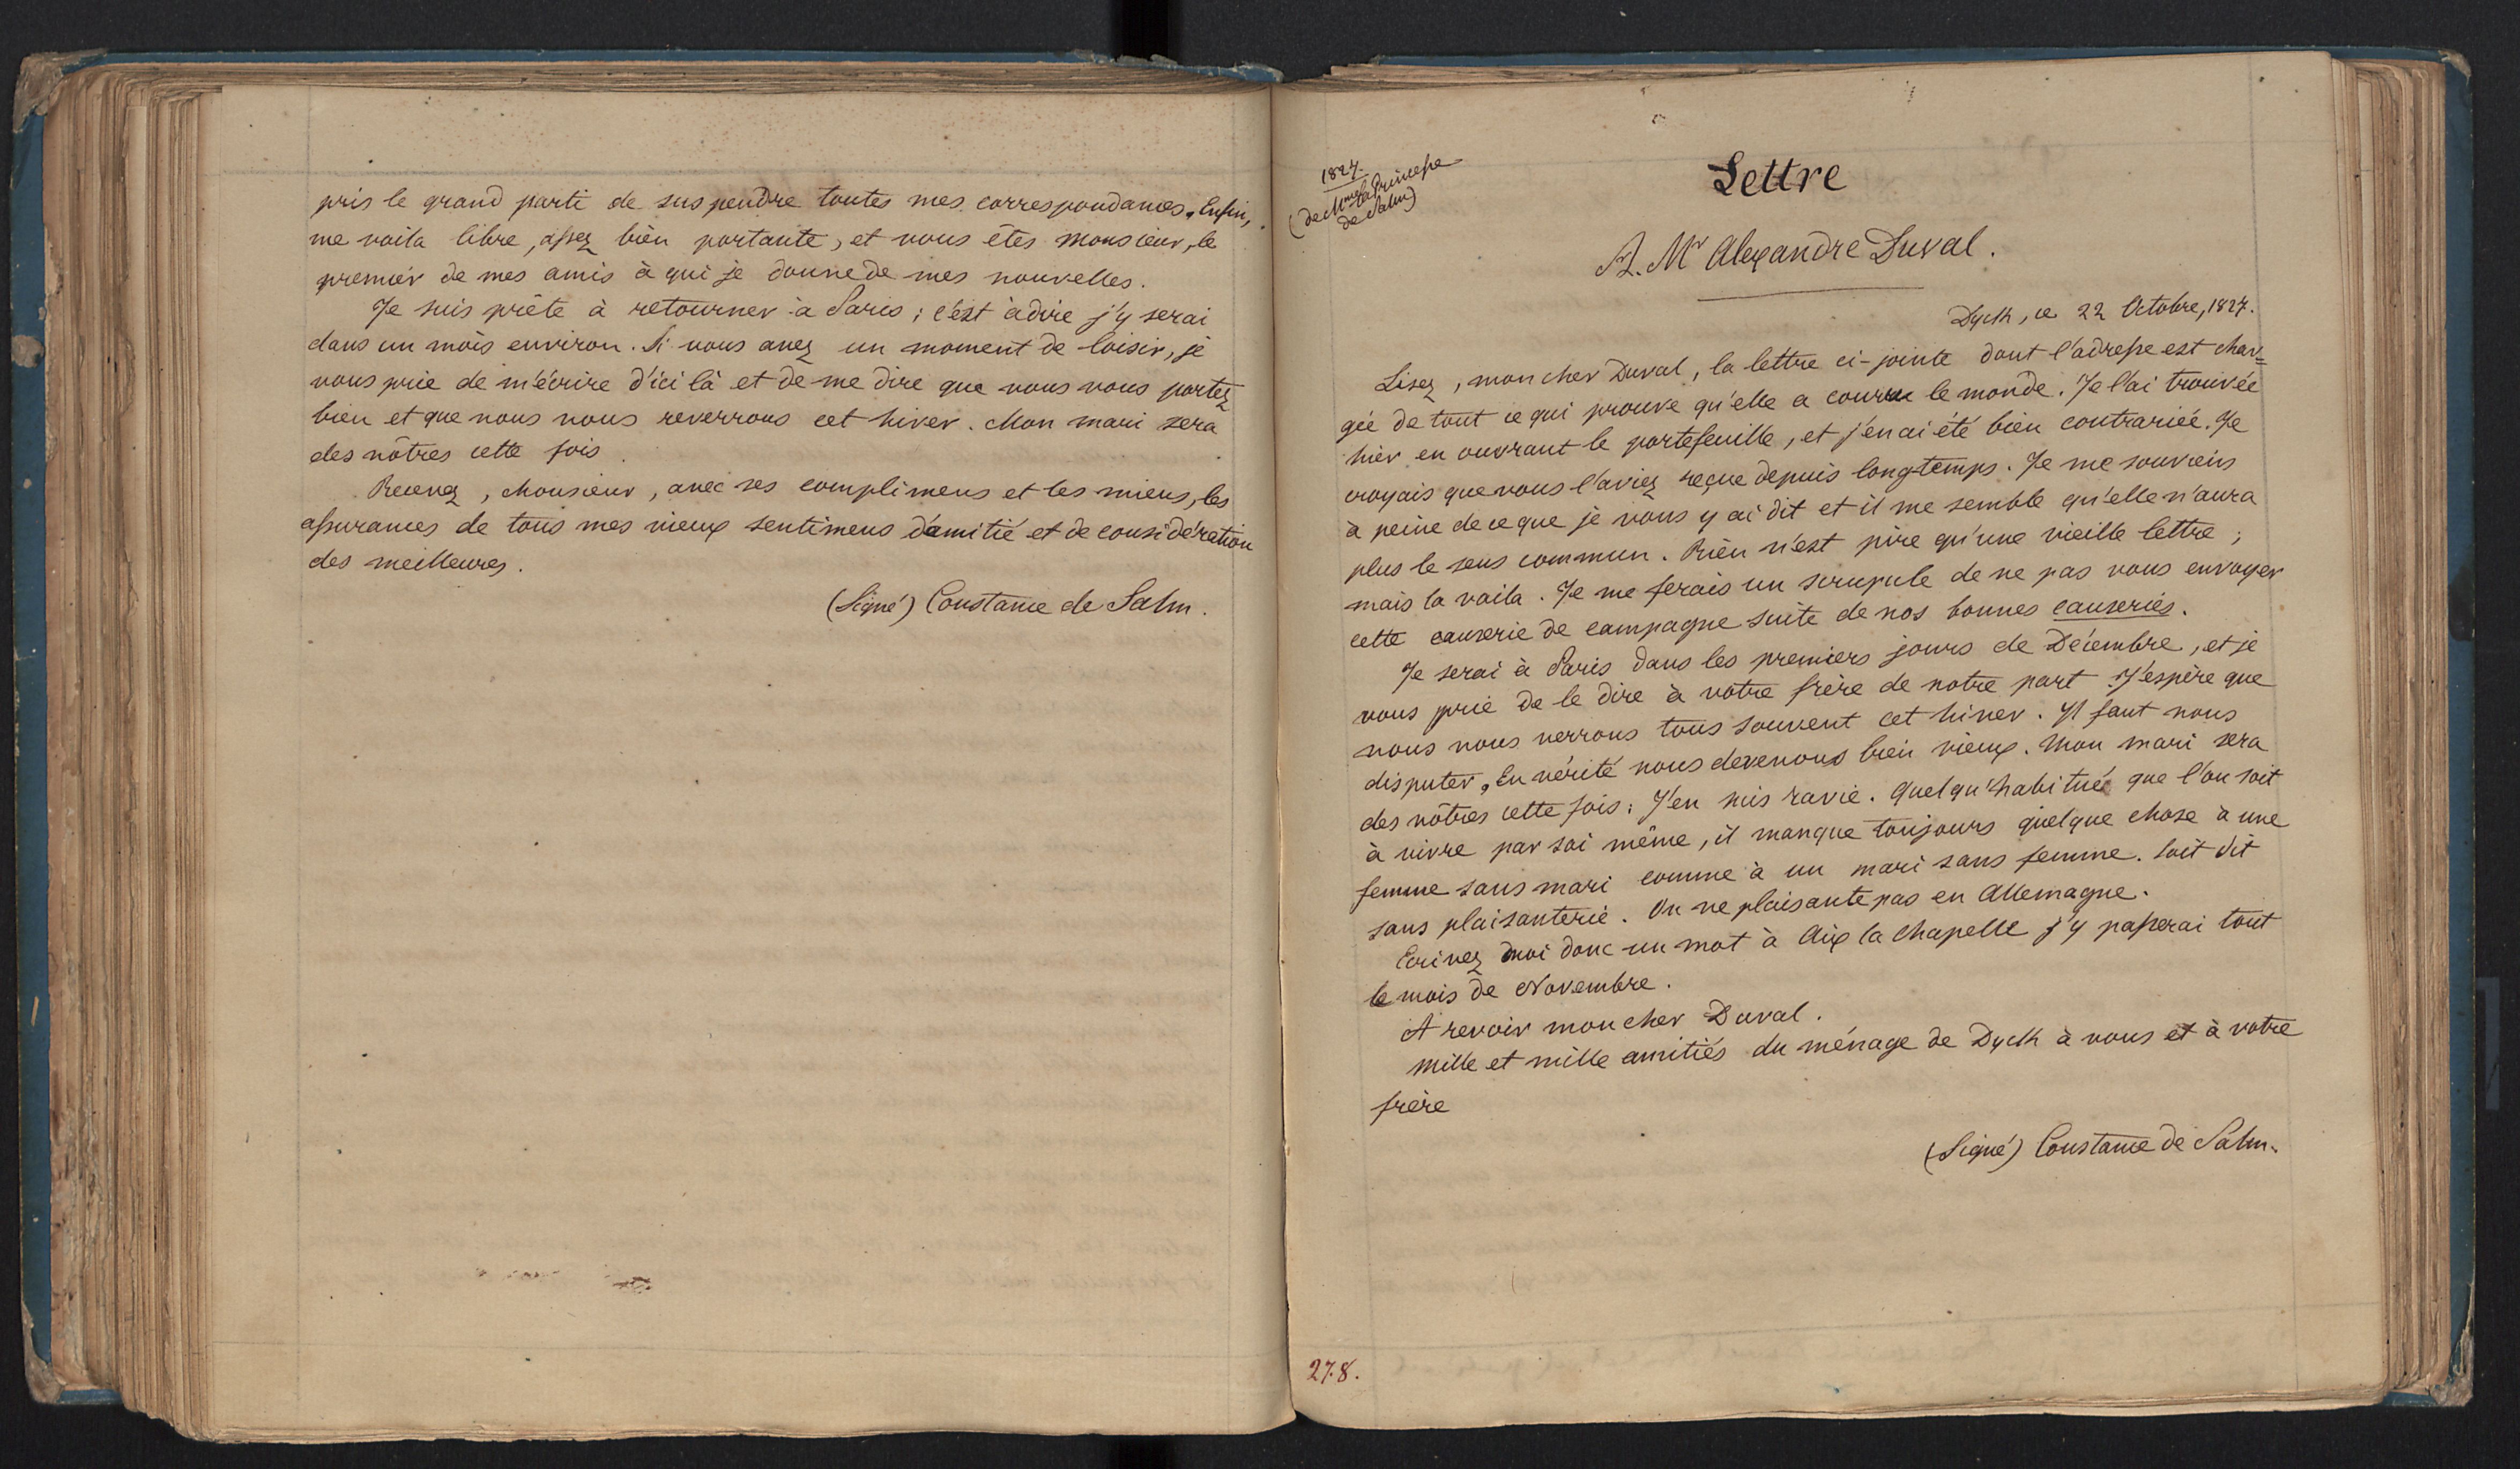 pris le grand parti de suspendre toutes mes correspondances. Enfin,
me voila libre, assez bien portante, et vous êtes monsieur, le
premier de mes amis à qui je donne de mes nouvelles.
Je suis prête à retourner à Paris ; c'est à dire j'y serai
dans un mois environ. Si vous avez un moment de loisir, je
vous prie de m'écrire d'ici là et de me dire que vous vous portez
bien et que nous nous reverrons cet hiver. Mon mari sera
des nôtres cette fois.
Recevez, Monsieur, avec ses complimens et les miens, les
assurances de tous mes vieux sentimens d'amitié et de considération
des meilleures.
(Signé) Constance de Salm.
1827.
(de Mme la Princesse
de Salm)
Lettre
A. Mr Alexandre Duval.
Dyck, ce 22 Octobre, 1827.
Lisez, mon cher Duval, la lettre ci-jointe dont l'adresse est char=
gée de tout ce qui prouve qu'elle a couru le monde. Je l'ai trouvée
hier en ouvrant le portefeuille, et j'en ai été bien contrariée. Je
croyais que vous l'aviez reçue depuis longtemps. Je me souviens
à peine de ce que je vous y ai dit et il me semble qu'elle n'aura
plus le sens commun. Rien n'est pire qu'une vieille lettre ;
mais la voila. Je me ferais un scrupule de ne pas vous envoyer
cette causerie de campagne suite de nos bonnes causeries.
Je serai à Paris dans les premiers jours de Décembre, et je
vous prie de le dire à votre frère de notre part. J'espère que
nous nous verrons tous souvent cet hiver. Il faut nous
disputer. En vérité nous devenons bien vieux. Mon mari sera
des nôtres cette fois : J'en suis ravie. Quelqu'habitué que l'on soit
à vivre par soi même, il manque toujours quelque chose à une
femme sans mari comme à un mari sans femme. Soit dit
sans plaisanterie. On ne plaisante pas en Allemagne.
Ecrivez moi donc un mot à Aix la Chapelle j'y passerai tout
le mois de Novembre.
A revoir mon cher Duval.
Mille et mille amitiés du ménage de Dyck à vous et à votre
frère
(Signé) Constance de Salm.
278.